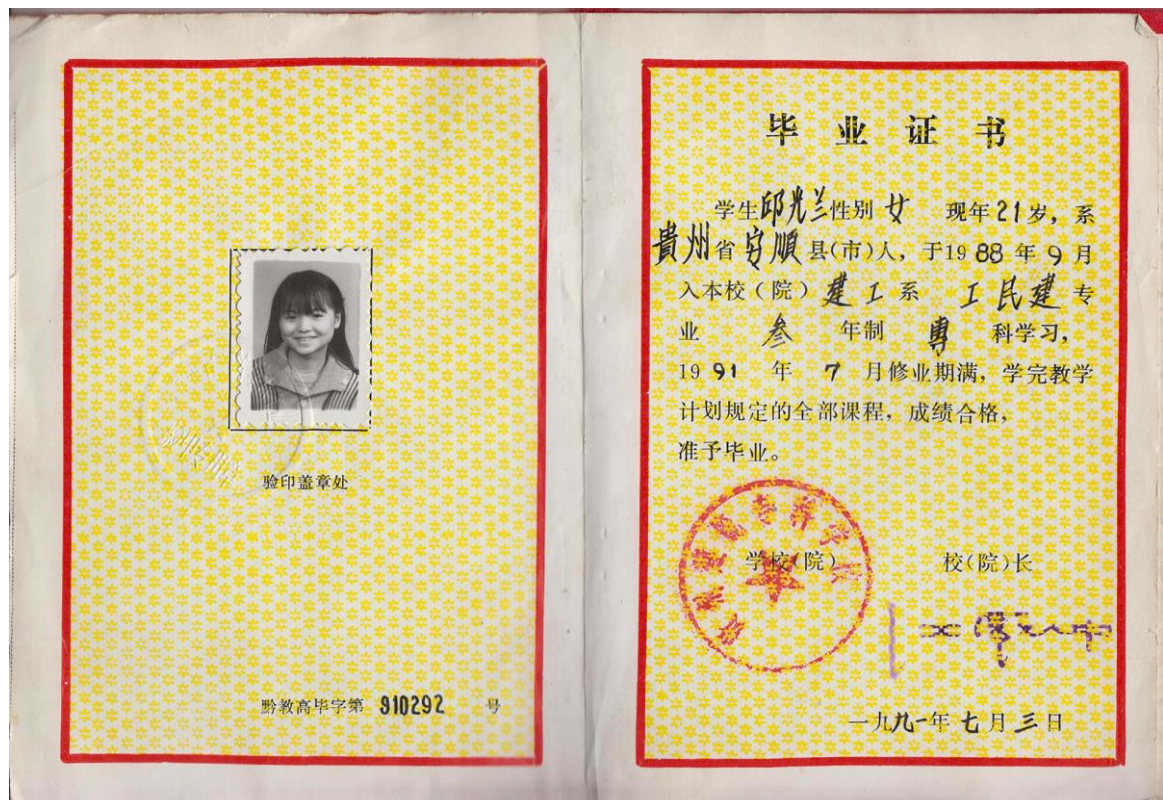 验印盖章处
黔教高毕字第 910292 号
毕业证书
学生邱光兰性别 女 现年21岁，系
貴州省安順县(市)人，于1988年9月
入本校（院）建工系 工民建专
业 叁 年制 專 科学习，
1991 年 7 月修业期满，学完教学
计划规定的全部课程，成绩合格，
准予毕业。
学校(院) 校(院)长
一九九一年七月三日